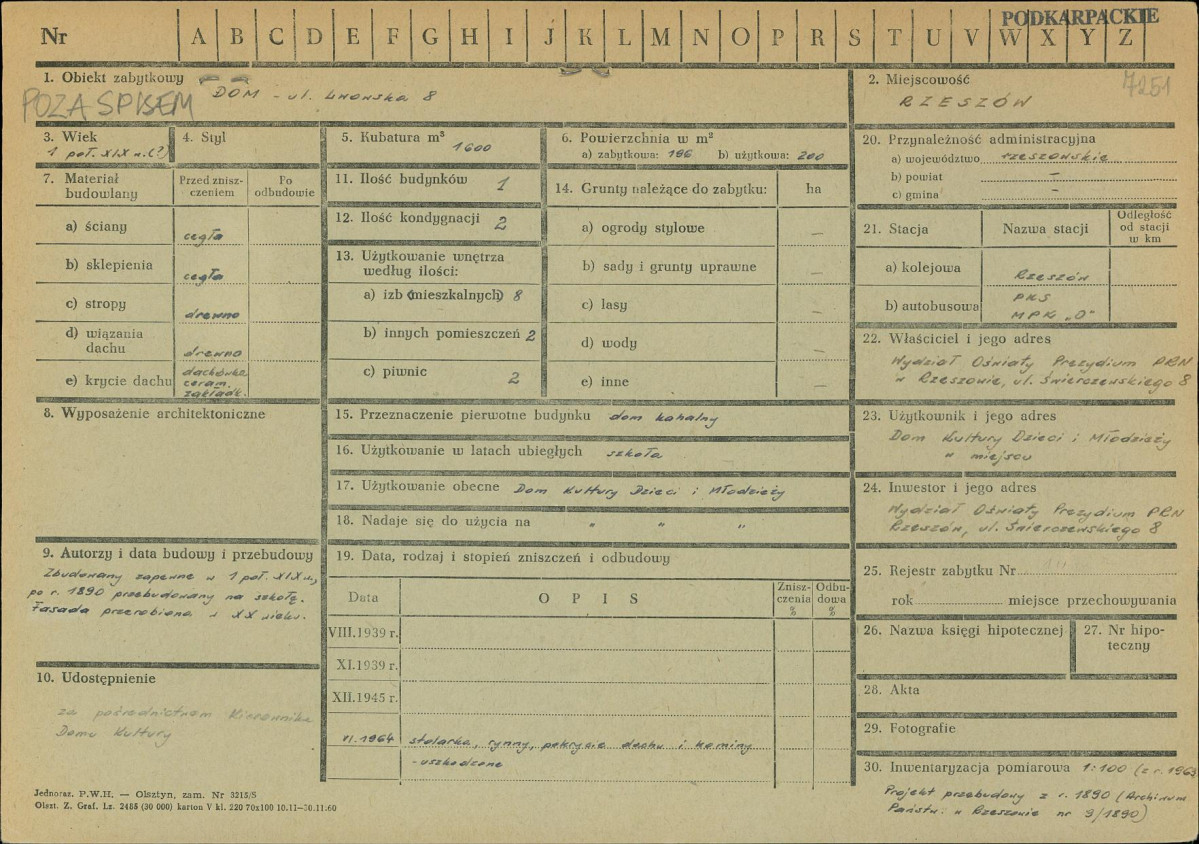 PODKARPACKIE
Nr A B C D E F G H I J K L M N O P R S T U V W X Y Z
1. Obiekt zabytkowy
DOM - ul. Lwowska 8
POZA SPISEM
2. Miejscowość
7251
RZESZÓW
3. Wiek
1 poł. XIX w. (?)
4. Styl
5. Kubatura m³
1600
6. Powierzchnia w m²
a) zabytkowa: 196 b) użytkowa: 200
7. Materiał budowlany
Przed zniszczeniem
Po odbudowie
a) ściany
cegła
b) sklepienia
cegła
c) stropy
drewno
d) wiązania dachu
drewno
e) krycie dachu
dachówka
ceram.
zakładk.
8. Wyposażenie architektoniczne
9. Autorzy i data budowy i przebudowy
Zbudowany zapewne w 1 poł. XIX w.,
po r. 1890 przebudowany na szkołę.
Fasada przerobiona w XX wieku.
10. Udostępnienie
za pośrednictwem Kierownika
Domu Kultury
11. Ilość budynków 1
12. Ilość kondygnacji 2
13. Użytkowanie wnętrza
według ilości:
a) izb (mieszkalnych) 8
b) innych pomieszczeń 2
c) piwnic 2
14. Grunty należące do zabytku: ha
a) ogrody stylowe –
b) sady i grunty uprawne –
c) lasy –
d) wody –
e) inne –
15. Przeznaczenie pierwotne budynku dom kahalny
16. Użytkowanie w latach ubiegłych szkoła
17. Użytkowanie obecne Dom Kultury Dzieci i Młodzieży
18. Nadaje się do użycia na " " "
19. Data, rodzaj i stopień zniszczeń i odbudowy
Data
OPIS
Zniszczenia %
Odbudowa %
VIII.1939 r.
XI.1939 r.
XII.1945 r.
VI.1964 stolarka, rynny, pokrycie dachu i kominy
- uszkodzone
20. Przynależność administracyjna
a) województwo rzeszowskie
b) powiat –
c) gmina –
21. Stacja
Nazwa stacji
Odległość od stacji w km
a) kolejowa
Rzeszów
b) autobusowa
PKS
MPK „0"
22. Właściciel i jego adres
Wydział Oświaty Prezydium PRN
w Rzeszowie, ul. Świerczewskiego 8
23. Użytkownik i jego adres
Dom Kultury Dzieci i Młodzieży
w miejscu
24. Inwestor i jego adres
Wydział Oświaty Prezydium PRN
Rzeszów, ul. Świerczewskiego 8
25. Rejestr zabytku Nr
rok miejsce przechowywania
26. Nazwa księgi hipotecznej
27. Nr hipoteczny
28. Akta
29. Fotografie
30. Inwentaryzacja pomiarowa 1:100 (z r. 1963
Projekt przebudowy z r. 1890 (Archiwum
Państw. w Rzeszowie nr 9/1890)
Jednoraz. P.W.H. — Olsztyn, zam. Nr 3215/S
Olszt. Z. Graf. Lz. 2485 (30 000) karton V kl. 220 70x100 10.11—30.11.60